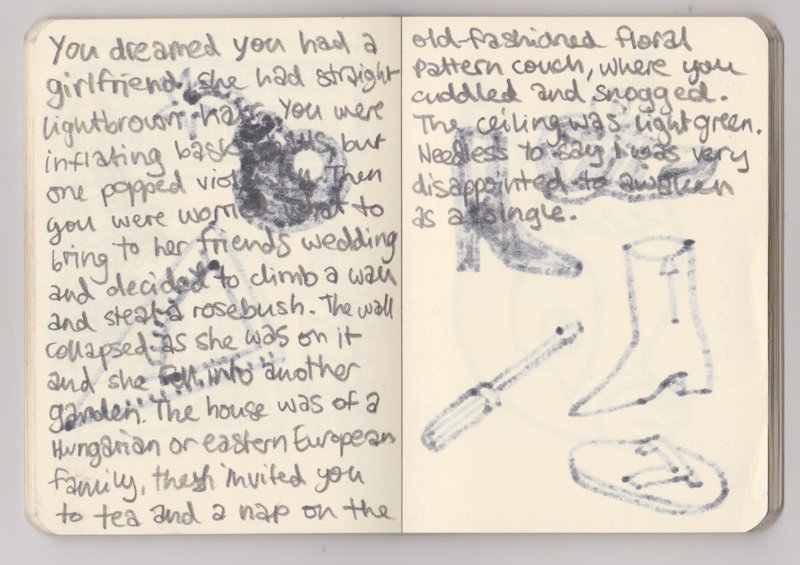 You dreamed you had a
girlfriend. she had straight
lightbrown hair. You were
inflating basketballs, but
one popped Then
you were worried what to
bring to her friends wedding
and decided to climb a wall
and steal a rosebush. The wall
collapsed as she was on it
and she fell into another
garden. The house was of a
Hungarian or eastern European
family, they invited you
to tea and a nap on the
old-fashioned floral
pattern couch, where you
cuddled and snogged.
The ceiling was lightgreen.
Needless to say I was very
disappointed to awaken
as a single.